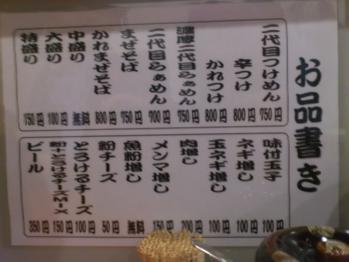 お品書き
二代目つけめん 750円
辛つけ 800円
かれつけ 800円
濃度二代目らぁめん 750円
二代目らぁめん 700円
まぜそば 750円
かれまぜそば 800円
中盛り 無料
大盛り 100円
特盛り 150円
味付玉子 100円
ネギ増し 100円
玉ネギ増し 100円
肉増し 200円
メンマ増し 150円
魚粉増し 無料
粉チーズ 50円
とろけるチーズ 100円
粉+とろけるチーズMIX 150円
ビール 350円